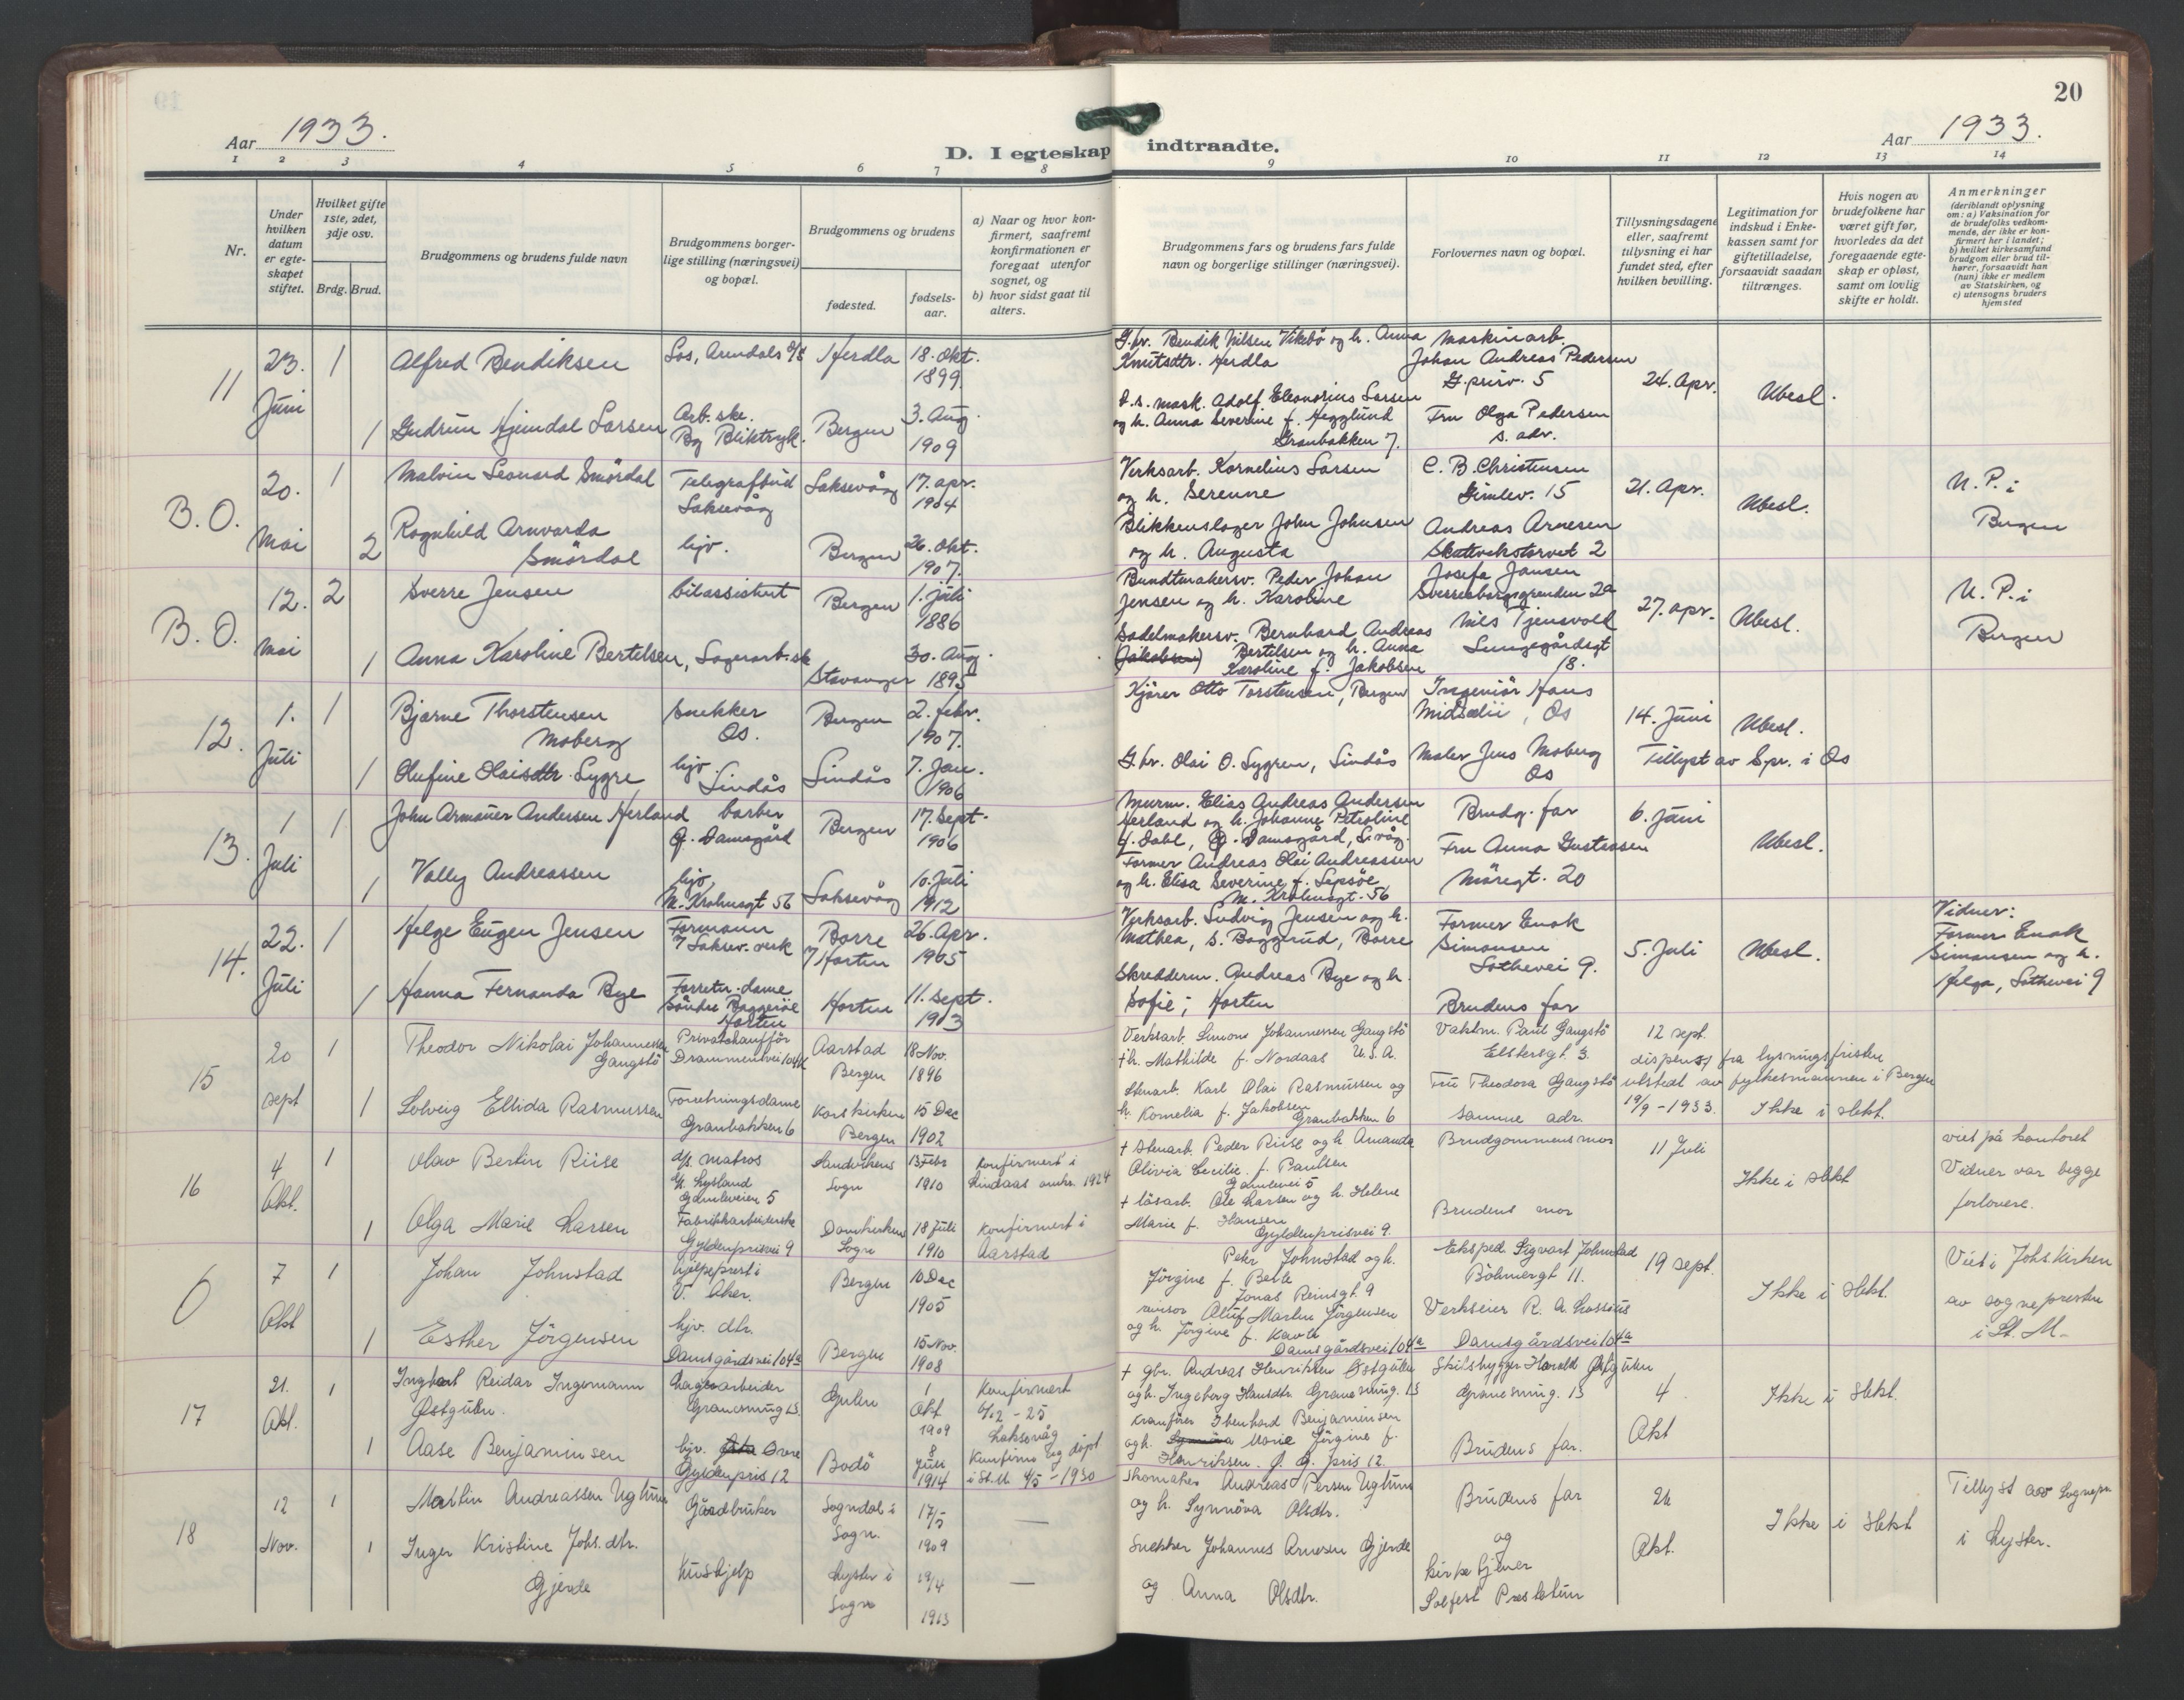 20
Aar 1933.
D. I egteskap indtraadte.
Aar 1933.
1 2 3 4 5 6 7 8 9 10 11 12 13 14
Nr.
Under hvilken datum er egteskapet stiftet.
Hvilket gifte 1ste, 2det, 3dje osv.
Brdg. Brud.
Brudgommens og brudens fulde navn
Brudgommens borgerlige stilling (næringsvei) og bopæl.
Brudgommens og brudens
fødested.
fødselsaar.
a) Naar og hvor konfirmert, saafremt konfirmationen er foregaat utenfor sognet, og
b) hvor sidst gaat til alters.
Brudgommens fars og brudens fars fulde navn og borgerlige stillinger (næringsvei).
Forlovernes navn og bopæl.
Tillysningsdagene eller, saafremt tillysning ei har fundet sted, efter hvilken bevilling.
Legitimation for indskud i Enkekassen samt for giftetilladelse, forsaavidt saadan tiltrænges.
Hvis nogen av brudefolkene har været gift før, hvorledes da det foregaaende egteskap er opløst, samt om lovlig skifte er holdt.
Anmerkninger (deriblandt oplysning om: a) Vaksination for de brudefolks vedkommende, der ikke er konfirmert her i landet; b) hvilket kirkesamfund brudgom eller brud tilhører, forsaavidt han (hun) ikke er medlem av Statskirken, og c) utensogns bruders hjemsted
11
23. Juni
1
Alfred Bendiksen
Herdla
18. Okt. 1899
G.br. Bendik Nilsen Vikebø og h. Anna
Knutsdtr. Herdla
Maskinarb.
Johan Andreas Pedersen
G.priv. 5
24. Apr.
Ubesl.
1
Gudrun Hjemdal Larsen
Arb.ske.
Bg Bliktryk.
Bergen
3. Aug. 1909
mask. Adolf Eleonorius Larsen
og h. Anna Severine f. Hegglund
Granbakken 7.
Fru Olga Pedersen
s. adr.
B.O.
20. Mai
1
Malvin Leonard Smördal
Telegrafbud
Laksevåg
Laksevåg
17. apr. 1904
Verksarb. Kornelius Larsen
og h. Serenne
C. B. Christensen
Gimlev. 15
21. Apr.
Ubesl.
N.P. i
Bergen
2
Ragnhild Arnvarda
Smördal
hjv.
Bergen
26. Okt. 1907.
Blikkenslager John Johnsen
og h. Augusta
Andreas Arnesen
Skuteviksto​rvet 2
B.O.
12. Mai
2
Sverre Jensen
bilassistent
Bergen
1. juli 1886
Bundtmakersv. Peder Johan
Jensen og h. Karoline
Josefa Jansen
Sverresborgsgrenden 2a
27. apr.
Ubesl.
N.P. i
Bergen
1
Anna Karoline Bertelsen, Lagerarb.ske
Stavanger
30. Aug. 1895
Sadelmakersv. Bernhard Andreas
(Jakobsen) Bertelsen og h. Anna
Karoline f. Jakobsen
Nils Tjensvoll
Lungegårdsgt
18.
12.
1. Juli
1
Bjarne Thorstensen
Moberg
snekker
Os.
Bergen
2. febr. 1907.
Kjører Otto Torstensen, Bergen
Ingeniör Hans
Midsælii, Os
14. Juni
Ubesl.
1
Olufine Olaisdtr. Lygre
hjv.
Lindås
Lindås
7. Jan. 1906
G.br. Olai O. Lygren, Lindås
Maler Jens Moberg
Os
Tillyst av Spr. i Os
13.
1 Juli
1
John Armauer Andersen Herland
barber
G. Damsgård
Bergen
17. Sept. 1906
Murm. Elias Andreas Andersen
Herland og h. Johanne Petroline
f. Dahl, G. Damsgård, L.våg.
Brudg. far
6. Juni
Ubesl.
1
Vally Andreassen
hjv.
M. Krohnsgt 56
Laksevåg
10. Juli 1912
Former Andreas Olai Andreassen
og h. Elisa Severine f. Lepsöe
M. Krohnsgt. 56
Fru Anna Gustavsen
Möregt. 20
14.
22. Juli
1
Helge Eugen Jensen
Formann
Laksev. verk
Borre
Horten
26. Apr. 1905
Verksarb. Ludvig Jensen og h.
Mathea, s. Baggerud, Borre
Former Enok
Simonsen
Lothevei 9.
5. Juli
Ubesl.
Vidner:
Former Enok
Simonsen og h.
Helga, Lothevei 9
1
Hanna Fernanda Bye
Forretn.dame
Söndre Baggeröe
Horten
Horten
11. Sept. 1903
Skredderm. Andreas Bye og h.
Sofie; Horten
Brudens far
15
20 Sept
1
Theodor Nikolai Johannessen
Gangstö
Privatchaufför
Drammensvei 104
Aarstad
Bergen
18 Nov. 1896
Verksarb. Simon Johannessen Gangstö
+h. Mathilde f. Nordaas U.S.A.
Vaktm. Paul Gangstö
Elstersgt 3.
12 sept.
dispens fra lysningsfristen
utstedt av fylkesmannen i Bergen
19/9 - 1933.
Ikke i slekt.
1
Solveig Ellida Rasmussen
Forretningsdame
Granbakken 6
Korskirken
Bergen
15 Dec 1902
Stenarb. Karl Olai Rasmussen og
h. Kornelia f. Jakobsen
Granbakken 6
Fru Theodora Gangstö
samme adr.
16
4 Okt.
1
Olav Bertin Riise
matros
Lysland
Gamleveien 5
Sandvikens
Sogn
13 Febr 1910
Konfirmert i
Lindaas 1924
+ Stenarb. Peder Riise og h. Amanda
Olivia Cecilie f. Paulsen
Gamlevei 5
Brudgommens mor
11 Juli
Ikke i slekt
viet på kontoret
Vidner var begge
forlovere.
1
Olga Marie Larsen
Fabrikkarbeiderske
Gyldenprisvei 9
Domkirken
Sogn
18 Juli 1910
Konfirmert i
Aarstad
+ lösarb. Ole Larsen og h. Helene
Marie f. Hansen
Gyldenprisvei 9.
Brudens mor
0
7 Okt
1
Johan Johnstad
hjelpeprest i
V. Aker.
Bergen
10 Dec 1905
Peter Johnstad og h.
Jörgine f. Belle
Jonas Reinsgt. 9
Eksped. Sigvart Johnstad
Böhmergt 11.
19 sept.
Ikke i slekt.
Viet i Johs.kirken
av sognepresten
i St. M-
1
Esther Jörgensen
hjv. dtr.
Damsgårdsvei 104a
Bergen
15 Nov. 1908
revisor Oluf Martin Jörgensen
og h. Jörgine f. Kavli
Damsgårdsvei 104a
Verkseier R. A. Lossius
Damsgårdsvei 104a
17
21. Okt.
1
Ingbart Reidar Ingemann
Østgulen.
Lagerarbeider
Granesmug. 15.
Gulen
1 Okt 1909
Konfirmert
6/12 - 25
Laksevåg
+ gbr. Andreas Henriksen Østgulen
og h. Ingeborg Hansdtr. Granesmug. 15
Skibsbygger Harald Østgulen
Granesmug. 15
4 Okt
Ikke i slekt.
1
Aase Benjaminsen
hjv. Övre
Gyldenpris 12
Bodö
8 Juli 1914
Konfirm og döpt
i St. M 4/5 - 1930
Kranförer Ibenhard Benjaminsen
og h. Marie Jörgine f.
Henriksen. Ö. G. pris 12.
Brudens far.
18
12 Nov.
1
Martin Andreassen Ugltun
Gårdbruker
Sogndal i
Sogn.
17/5 1909
—
Skomaker Andreas Persen Ugltun
og h. Synnöva Olsdtr.
Brudens far
og
26 Okt.
Ikke i slekt
Tillyst av Sognepr
i Lyster.
1
Inger Kristine Johs. dtr.
Gjerde
Hushjelp
Lyster i
Sogn
19/4 1913
—
Snekker Johannes Arnesen Gjerde
og Anna Olsdtr.
Kirketjener
Solfest Prestetun